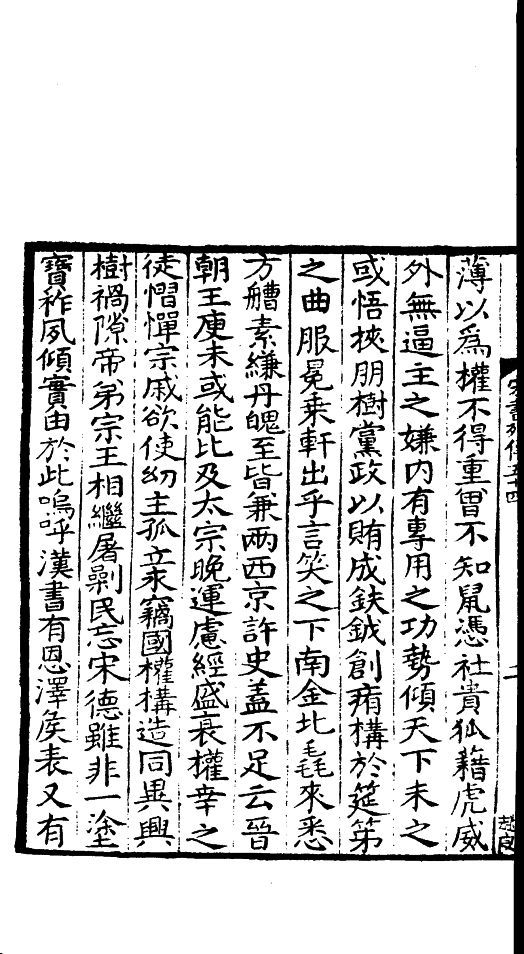 薄以為權不得重曾不知鼠憑社貴狐藉虎威
外無逼主之嫌内有專用之功勢傾天下未之
或悟挾朋樹黨政以賄成鈇鉞創痏構於筵第
之曲服冕乗軒出乎言笑之下南金北毳來悉
方艚素縑丹魄至皆兼兩西京許史盖不足云晉
朝王庾未或能比及太宗晚運慮經盛衰權幸之
徒慴憚宗戚欲使幼主孤立永竊國權構造同異興
樹禍隙帝弟宗王相繼屠剿民忘宋德雖非一塗
寶祚夙傾實由於此嗚呼漢書有恩澤侯表又有
宋書列傳五十四
二